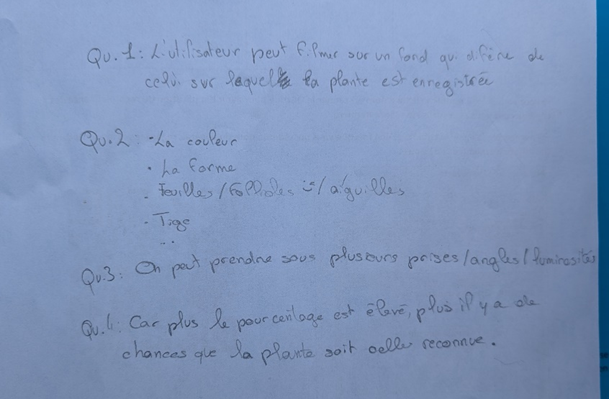 Qu.1: L'utilisateur peut filmer sur un fond qui difère de
celui sur lequel la plante est enregistrée
Qu.2: - La couleur
• La forme
- Feuilles/Folioles :)/aiguilles
- Tige
...
Qu.3: On peut prendre sous plusieurs prises/angles/luminosités
Qu.4: Car plus le pourcentage est élevé, plus il y a de
chances que la plante soit celle reconnue.